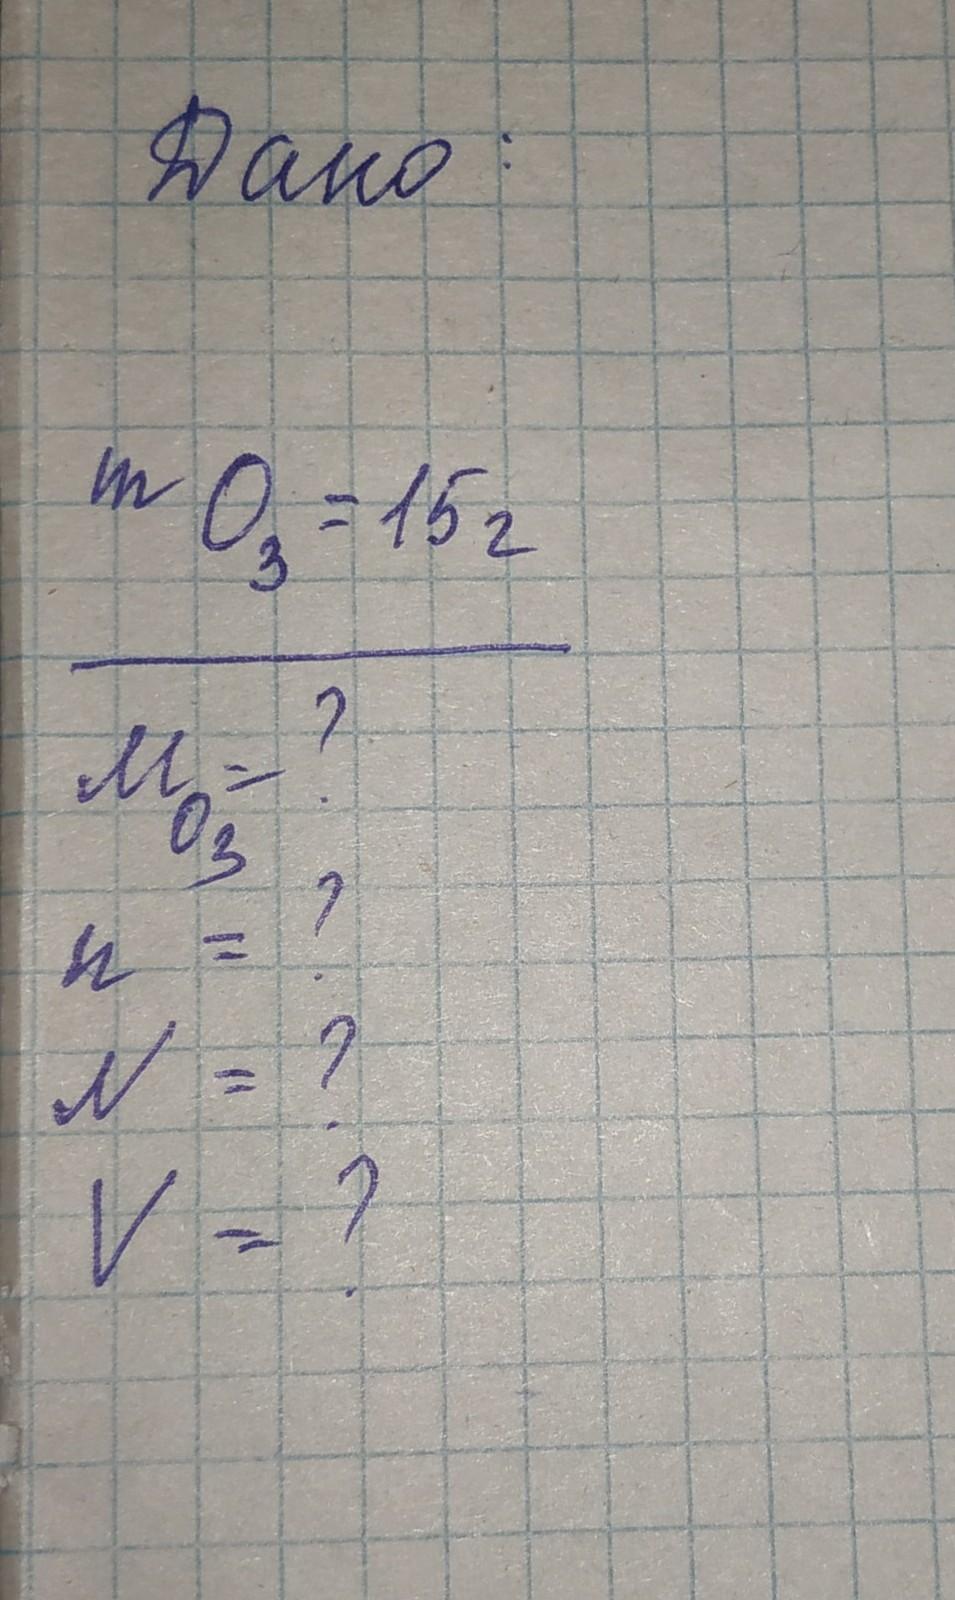 Дано:
m O₃ = 15г
M O₃ = ?
n = ?
N = ?
V = ?